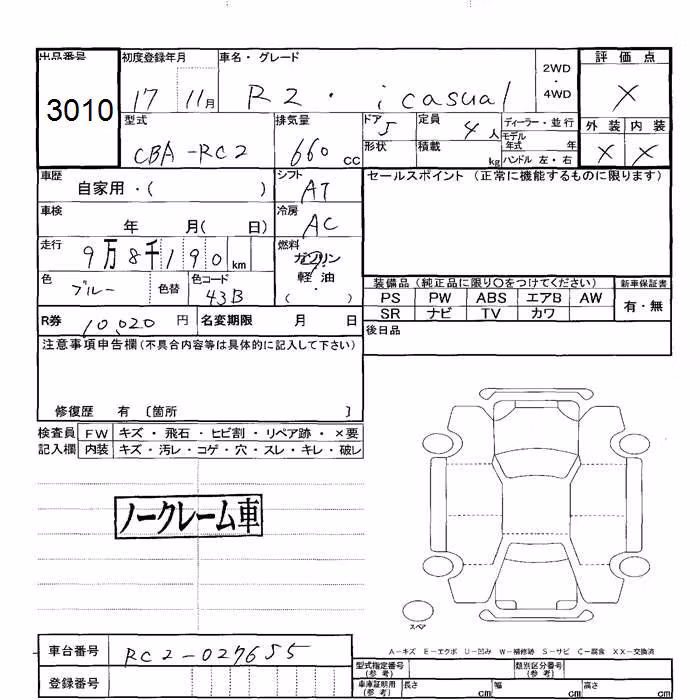 出品番号 初度登録年月 車名・グレード 2WD・4WD 評価点
3010 17 11月 R2・i casual ×
型式 排気量 ドア 定員 ディーラー・並行 外装 内装
CBA-RC2 660cc 5 4人 モデル年式 年 × ×
形状 積載 kg ハンドル 左・右
車歴 自家用・( ) シフト AT セールスポイント (正常に機能するものに限ります)
車検 年 月( 日) 冷房 AC
走行 9万8千190km 燃料 ガソリン
軽油
・
( )
色 ブルー 色替 色コード 43B
装備品(純正品に限り○をつけてください) 新車保証書
PS PW ABS エアB AW 有・無
SR ナビ TV カワ
R券 10,020円 名変期限 月 日 後日品
注意事項申告欄(不具合内容等は具体的に記入して下さい)
修復歴 有 〔箇所 〕
検査員 FW キズ・飛石・ヒビ割・リペア跡・×要
記入欄 内装 キズ・汚レ・コゲ・穴・スレ・キレ・破レ
ノークレーム車
スペア
A-キズ E-エクボ U-凹み W-補修跡 S-サビ C-腐食 XX-交換済
車台番号 RC2-027655
型式指定番号(参考) 類別区分番号(参考)
登録番号
車庫証明用(参考) 長さ cm 幅 cm 高さ cm